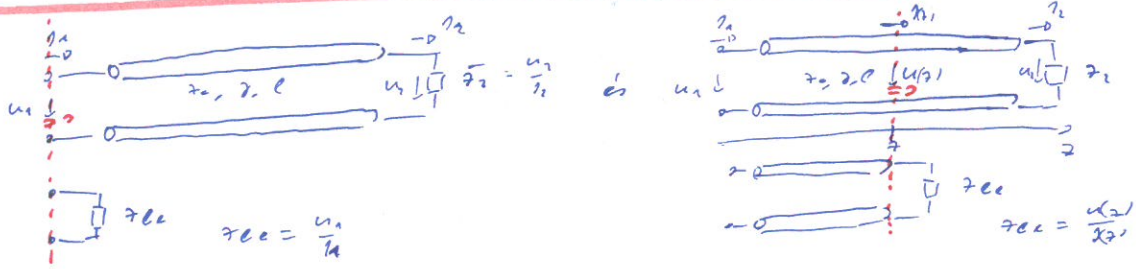 I₁
I₂
Z₀, γ, l
U₁
U₂
Z₂ = U₂/I₂
Zbe
Zbe = U₁/I₁
és
I₁
I(z)
I₂
Z₀, γ, l
U(z)
U₁
U₂
Z₂
z
z
Zbe
Zbe = U(z)/I(z)